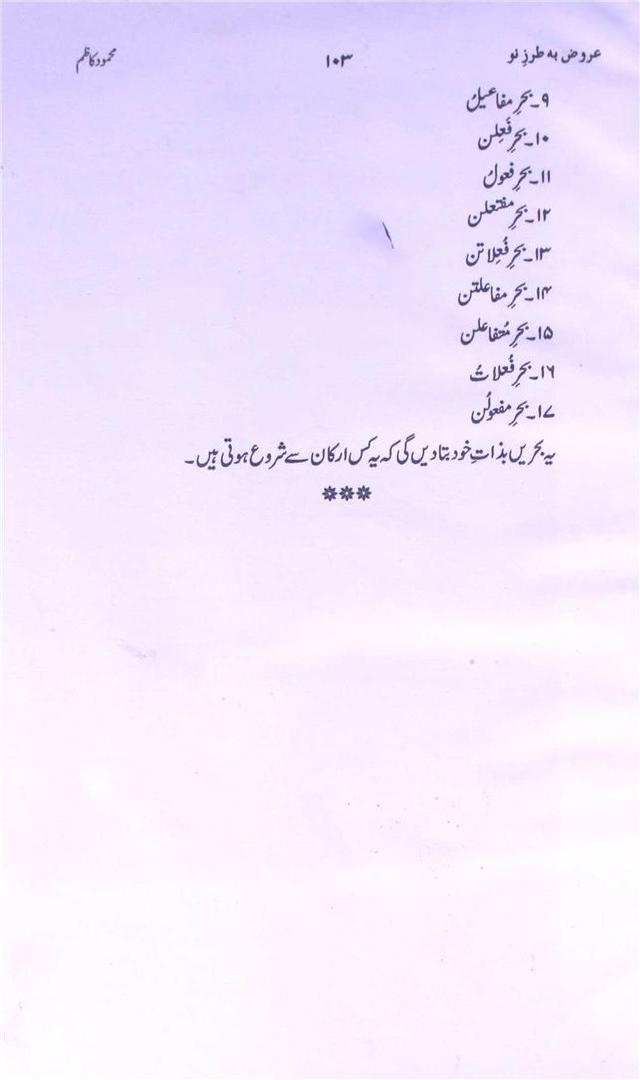 عروض بہ طرزِ نو ۱۰۳ محمود کاظم
۹۔ بحرِ مفاعیلُ
۱۰۔ بحرِ فَعِلن
۱۱۔ بحرِ فعولُ
۱۲۔ بحرِ مفتعلن
۱۳۔ بحرِ فَعِلاتن
۱۴۔ بحرِ مفاعلتن
۱۵۔ بحرِ مُتفاعلن
۱۶۔ بحرِ فَعلاتُ
۱۷۔ بحرِ مفعولُن
یہ بحریں بذاتِ خود بتا دیں گی کہ یہ کس ارکان سے شروع ہوتی ہیں۔
***